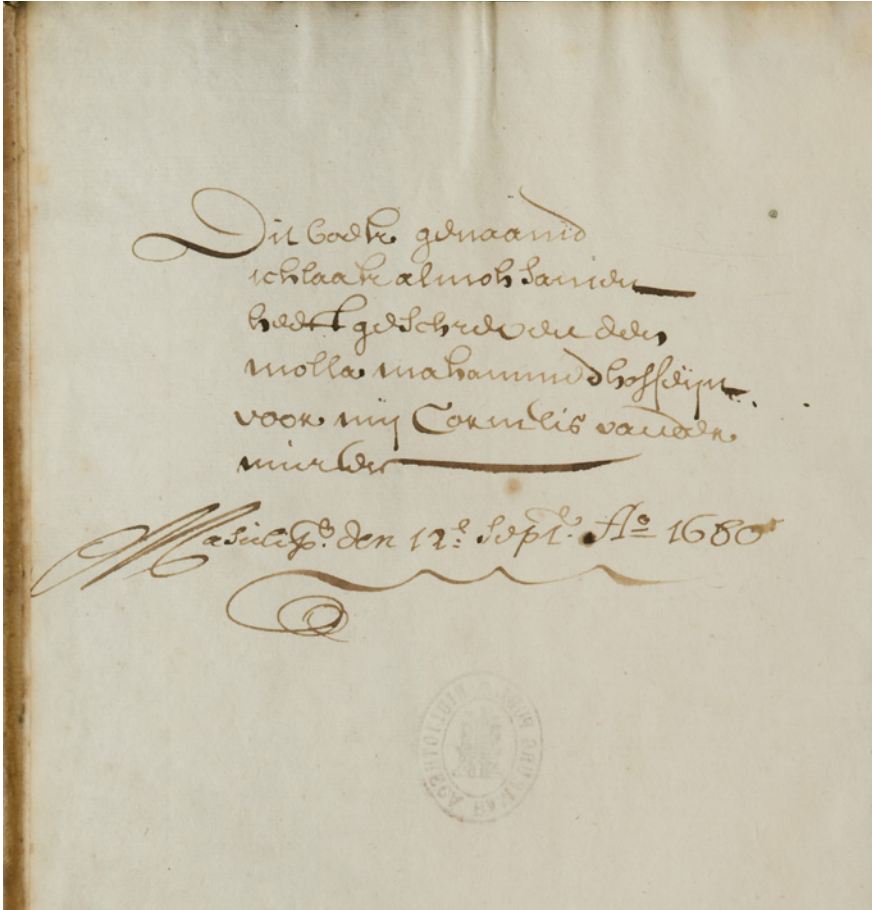 Dit boek genaamd
ichlaak almohsanien
heeft geschreven den
molla mahammed hosseijn
voor mij Cornelis vander
murden
Masulip.^m den 12.^e Sept.^r A^o 1680